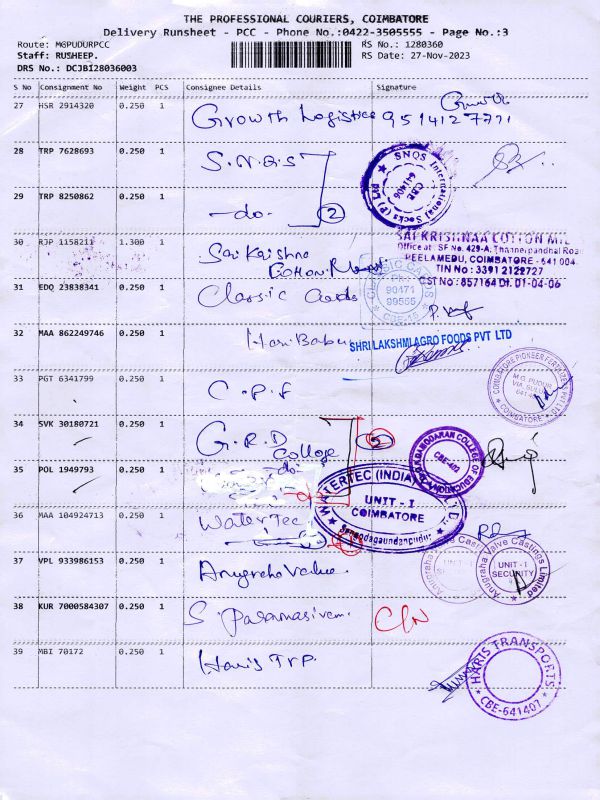 THE PROFESSIONAL COURIERS, COIMBATORE
Delivery Runsheet - PCC - Phone No.:0422-3505555 - Page No.:3
Route: MGPUDURPCC
Staff: RUSHEEP.
DRS No.: DCJB128036003
RS No.: 1280360
RS Date: 27-Nov-2023
S No Consignment No Weight PCS Consignee Details Signature
27 HSR 2914320 0.250 1 Growth Logistics 9514127771
28 TRP 7628693 0.250 1 S.N.Q.S
SNQS International Socks (P) Ltd
CBE
29 TRP 8250862 0.250 1 -do- 2
30 RJP 1158211 1.300 1 Sai Krishna Cotton
SAI KRISHNAA COTTON MIL
Office at: SF No. 429-A, Thanneerpandhal Road
PEELAMEDU, COIMBATORE - 641 004.
TIN No : 33912122727
CST No : 857164 Dt. 01-04-06
31 EDQ 23838341 0.250 1 Classic Cards
CLASSIC CARDS
90471
99565
CBE-15
32 MAA 862249746 0.250 1 Hari Babu
SHRI LAKSHMI AGRO FOODS PVT LTD
33 PGT 6341799 0.250 1 C.P.F
COIMBATORE PIONEER FERTILIZERS
M.G. PUDUR
VIA. SULUR
COIMBATORE
34 SVK 30180721 0.250 1 G.R.D College
COLLEGE OF EDUCATION
CBE-402
35 POL 1949793 0.250 1 -do-
WATERTEC (INDIA)
UNIT - I
COIMBATORE
36 MAA 104924713 0.250 1 Watertec
37 VPL 933986153 0.250 1 Anugraha Valve
Anugraha Valve Castings Limited
UNIT - I
SECURITY
38 KUR 7000584307 0.250 1 S. Paramasivam C/N
39 MBI 70172 0.250 1 Haris TRP.
HARIS TRANSPORTS
CBE-641407